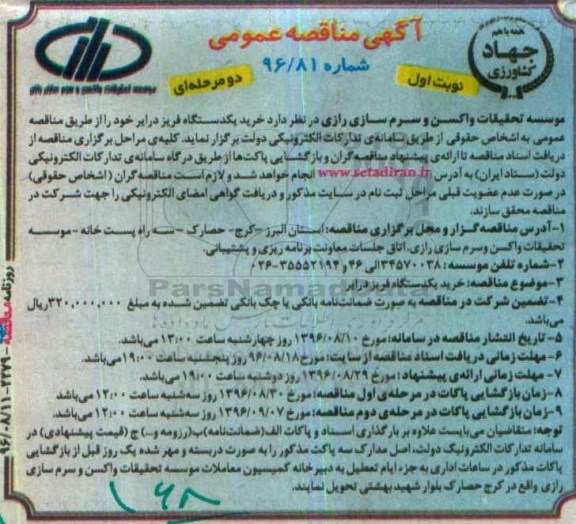 آگهی مناقصه عمومی
شماره ۹۶/۸۱
همه با هم
جهاد
کشاورزی
نوبت اول
دو مرحله‌ای
موسسه تحقیقات واکسن و سرم سازی رازی
موسسه تحقیقات واکسن و سرم سازی رازی در نظر دارد خرید یکدستگاه فریز درایر خود را از طریق مناقصه
عمومی به اشخاص حقوقی از طریق سامانه‌ی تدارکات الکترونیکی دولت برگزار نماید. کلیه‌ی مراحل برگزاری مناقصه از
دریافت اسناد مناقصه تا ارائه‌ی پیشنهاد مناقصه گران و بازگشایی پاکت‌ها از طریق درگاه سامانه‌ی تدارکات الکترونیکی
دولت (ستاد ایران) به آدرس www.setadiran.ir انجام خواهد شد و لازم است مناقصه گران (اشخاص حقوقی)
در صورت عدم عضویت قبلی مراحل ثبت نام در سایت مذکور و دریافت گواهی امضای الکترونیکی را جهت شرکت در
مناقصه محقق سازند.
۱-آدرس مناقصه گزار و محل برگزاری مناقصه: استان البرز -کرج- حصارک -سه راه پست خانه -موسسه
تحقیقات واکسن وسرم سازی رازی، اتاق جلسات معاونت برنامه ریزی و پشتیبانی.
۲-شماره تلفن موسسه: ۳۴۵۷۰۰۳۸الی ۴۶ و ۳۵۵۵۲۱۹۴-۰۲۶
۳-موضوع مناقصه: خرید یکدستگاه فریز درایر
۴-تضمین شرکت در مناقصه به صورت ضمانت‌نامه بانکی یا چک بانکی تضمین شده به مبلغ ۳۲۰,۰۰۰,۰۰۰ریال
می‌باشد.
۵-تاریخ انتشار مناقصه در سامانه: مورخ ۱۳۹۶/۰۸/۱۰ روز چهارشنبه ساعت ۱۳:۰۰ می‌باشد.
۶-مهلت زمانی دریافت اسناد مناقصه از سایت: مورخ ۹۶/۰۸/۱۸ روز پنجشنبه ساعت ۱۹:۰۰ می‌باشد.
۷-مهلت زمانی ارائه‌ی پیشنهاد: مورخ ۱۳۹۶/۰۸/۲۹ روز دوشنبه ساعت ۱۹:۰۰ می‌باشد.
۸-زمان بازگشایی پاکات در مرحله‌ی اول مناقصه: مورخ ۱۳۹۶/۰۸/۳۰ روز سه‌شنبه ساعت ۱۲:۰۰ می‌باشد
۹-زمان بازگشایی پاکات در مرحله‌ی دوم مناقصه: مورخ ۱۳۹۶/۰۹/۰۷ روز سه‌شنبه ساعت ۱۲:۰۰ می‌باشد.
توجه: متقاضیان می‌بایست علاوه بر بارگذاری اسناد و پاکات الف(ضمانت‌نامه)ب(رزومه و...) ج (قیمت پیشنهادی) در
سامانه تدارکات الکترونیک دولت، اصل مدارک سه پاکت مذکور را به صورت دربسته و مهر شده یک روز قبل از بازگشایی
پاکات مذکور در ساعات اداری به جزء ایام تعطیل به دبیرخانه کمیسیون معاملات موسسه تحقیقات واکسن و سرم سازی
رازی واقع در کرج حصارک بلوار شهید بهشتی تحویل نمایند.
روزنامه مناقصه ۲۲۷۹-۹۶/۰۸/۱۱
ParsNamad
۱۶۸